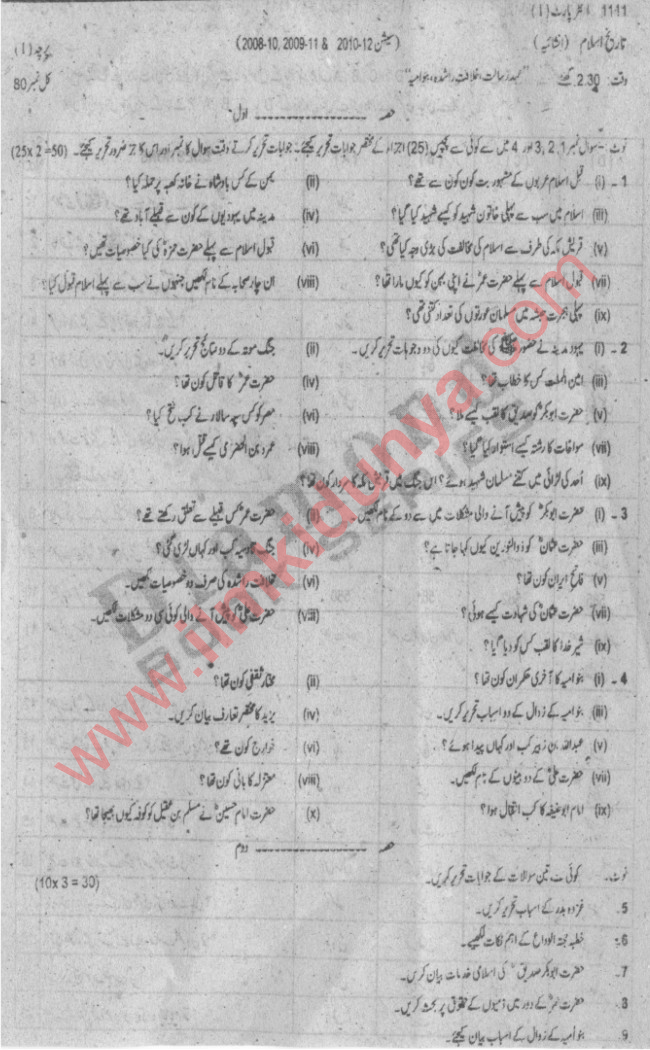 1111 انٹر پارٹ (I)
تاریخ اسلام (انشائیہ) (سیشن 2010-12 & 2009-11 ,2008-10) پرچہ (I)
وقت: 2.30 گھنٹے "عہد رسالت، خلافت راشدہ، بنوامیہ" کل نمبر 80
حصہ اول
نوٹ - سوال نمبر 1, 2, 3 اور 4 میں سے کوئی سے پچیس (25) اجزاء کے مختصر جوابات تحریر کیجئے۔ جوابات تحریر کرتے وقت سوال کا نمبر اور اس کا جز ضرور تحریر کیجئے۔ (25x 2 =50)
1 - (i) قبل اسلام عربوں کے مشہور بت کون کون سے تھے؟ (ii) یمن کے کس بادشاہ نے خانہ کعبہ پر حملہ کیا؟
(iii) اسلام میں سب سے پہلی خاتون شہید کو کیسے شہید کیا گیا؟ (iv) مدینہ میں یہودیوں کے کون سے قبیلے آباد تھے؟
(v) قریش مکہ کی طرف سے اسلام کی مخالفت کی بڑی وجہ کیا تھی؟ (vi) قبول اسلام سے پہلے حضرت حمزہؓ کی کیا خصوصیات تھیں؟
(vii) قبول اسلام سے پہلے حضرت عمرؓ نے اپنی بہن کو کیوں مارا تھا؟ (viii) ان چار صحابہ کے نام لکھیں جنہوں نے سب سے پہلے اسلام قبول کیا؟
(ix) پہلی ہجرت حبشہ میں مسلمان عورتوں کی تعداد کتنی تھی؟
2 - (i) یہود مدینہ نے حضور ﷺ کی مخالفت کیوں کی دو وجوہات تحریر کریں۔ (ii) جنگ موتہ کے دو نتائج تحریر کریں۔
(iii) امین الملت کس کا خطاب تھا؟ (iv) حضرت عمرؓ کا قاتل کون تھا؟
(v) حضرت ابوبکرؓ کو صدیق کا لقب کیسے ملا؟ (vi) مصر کو کس سپہ سالار نے کب فتح کیا؟
(vii) مواخات کا رشتہ کیسے استوار کیا گیا؟ (viii) عمرو بن الحضرمی کیسے قتل ہوا؟
(ix) اُحد کی لڑائی میں کتنے مسلمان شہید ہوئے؟ اس جنگ میں قریش مکہ کا سردار کون تھا؟
3 - (i) حضرت ابوبکرؓ کو پیش آنے والی مشکلات میں سے دو کے نام لکھیں۔ (ii) حضرت عمرؓ کس قبیلے سے تعلق رکھتے تھے؟
(iii) حضرت عثمانؓ کو ذوالنورین کیوں کہا جاتا ہے؟ (iv) جنگ قادسیہ کب اور کہاں لڑی گئی؟
(v) فاتح ایران کون تھا؟ (vi) خلافت راشدہ کی صرف دو خصوصیات لکھیں۔
(vii) حضرت عثمانؓ کی شہادت کیسے ہوئی؟ (viii) حضرت علیؓ کو پیش آنے والی کوئی سی دو مشکلات لکھیں۔
(ix) شیر خدا کا لقب کس کو دیا گیا؟
4 - (i) بنوامیہ کا آخری حکمران کون تھا؟ (ii) مختار ثقفی کون تھا؟
(iii) بنوامیہ کے زوال کے دو اسباب تحریر کریں۔ (iv) یزید کا مختصر تعارف بیان کریں۔
(v) عبداللہ بن زبیر کب اور کہاں پیدا ہوئے؟ (vi) خوارج کون تھے؟
(vii) حضرت علیؓ کے دو بیٹوں کے نام لکھیں۔ (viii) معتزلہ کا بانی کون تھا؟
(ix) امام ابوحنیفہ کا کب انتقال ہوا؟ (x) حضرت امام حسینؓ نے مسلم بن عقیل کو کوفہ کیوں بھیجا تھا؟
حصہ دوم
نوٹ۔ کوئی سے تین سوالات کے جوابات تحریر کریں۔ (10x 3 = 30)
5. غزوہ بدر کے اسباب تحریر کریں۔
6. خطبہ حجۃ الوداع کے اہم نکات لکھیے۔
7. حضرت ابوبکر صدیقؓ کی اسلامی خدمات بیان کریں۔
8. حضرت عمرؓ کے دور میں ذمیوں کے حقوق پر بحث کریں۔
9. بنوامیہ کے زوال کے اسباب بیان کیجئے۔
www.ilmkidunya.com